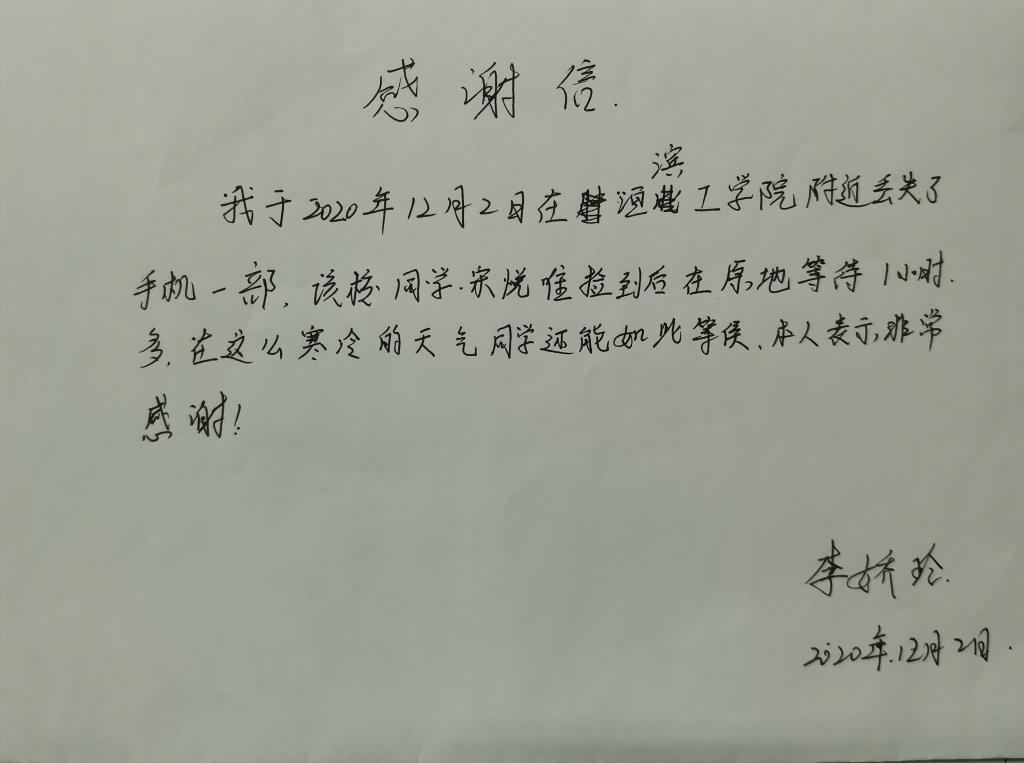 感谢信.
我于2020年12月2日在洹滨工学院附近丢失了
手机一部,该校同学.宋悦唯捡到后在原地等待1小时.
多,在这么寒冷的天气同学还能如此等侯、本人表示非常
感谢!
李娇玲.
2020年.12月2日.